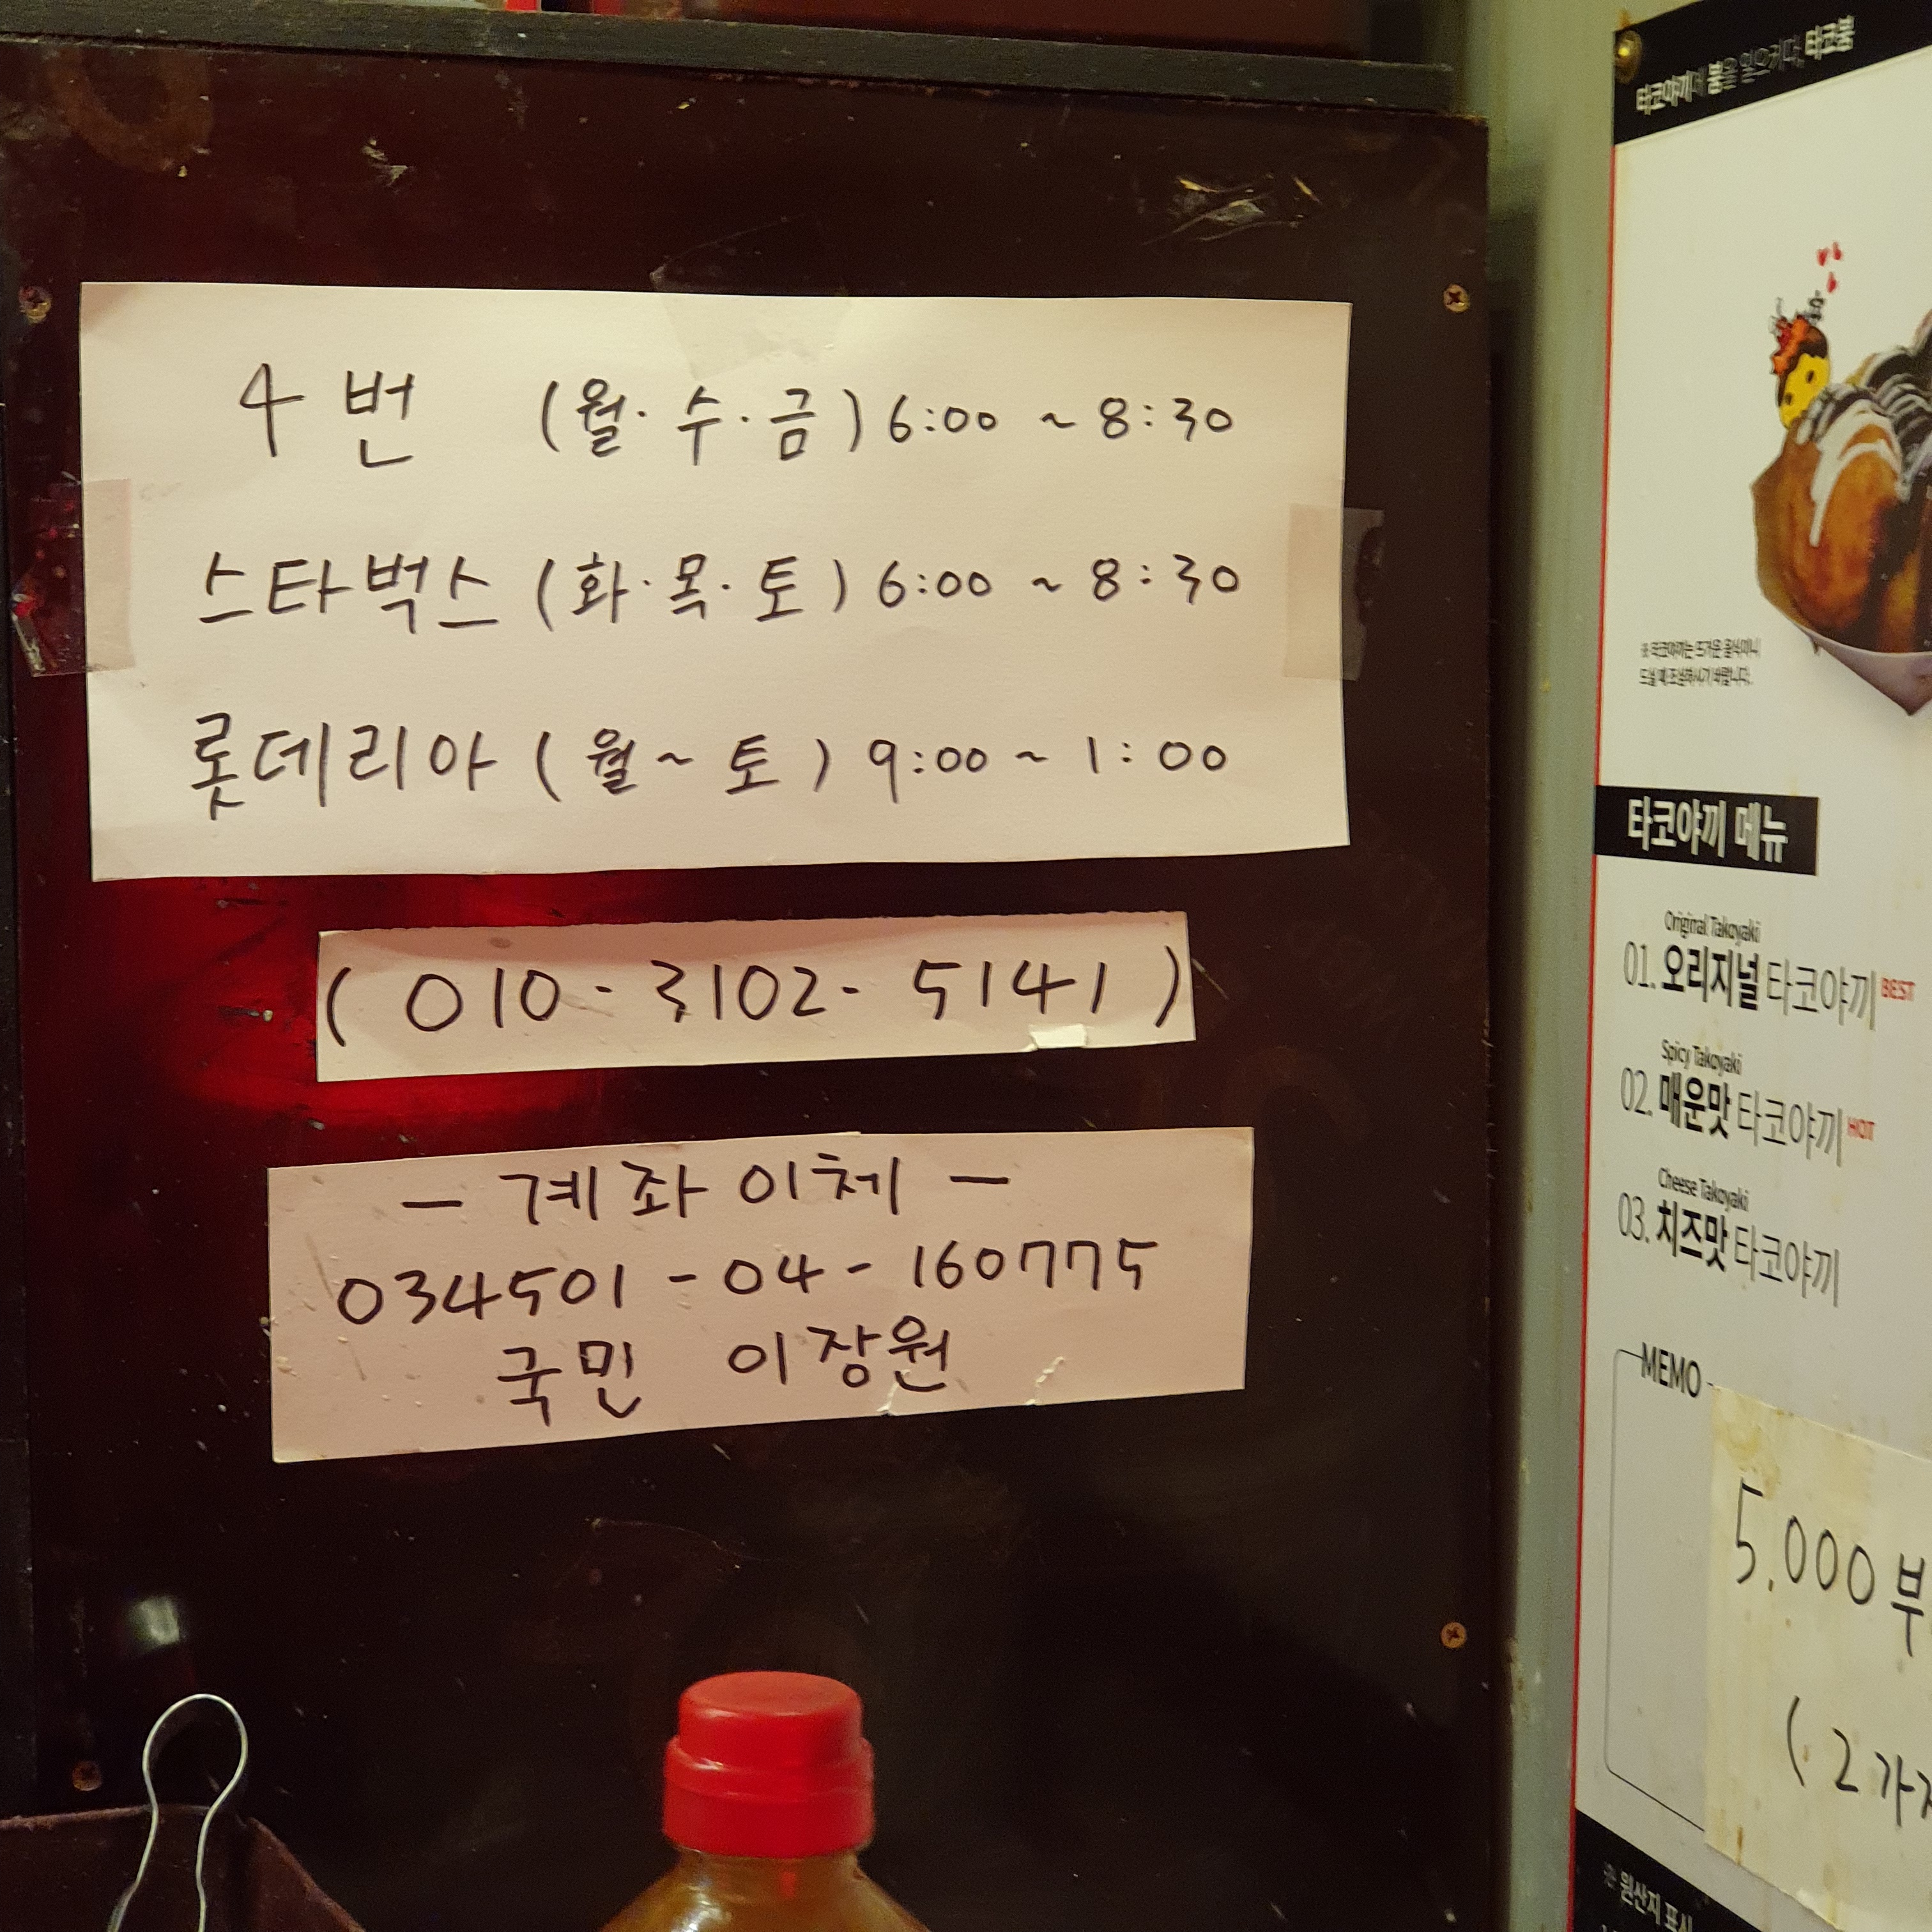 4번 (월·수·금) 6:00 ~ 8:30
스타벅스 (화·목·토) 6:00 ~ 8:30
롯데리아 (월~토) 9:00 ~ 1:00
(010-3102-5141)
- 계좌이체 -
034501-04-160775
국민 이장원
타코야끼에 붐을 일으키다, 타코붐
※ 타코야끼는 뜨거운 음식이니
드실 때 조심하시기 바랍니다.
타코야끼 메뉴
Original Takoyaki
01. 오리지널 타코야끼 BEST
Spicy Takoyaki
02. 매운맛 타코야끼 HOT
Cheese Takoyaki
03. 치즈맛 타코야끼
MEMO
5,000 부
(2가지
원산지 표시